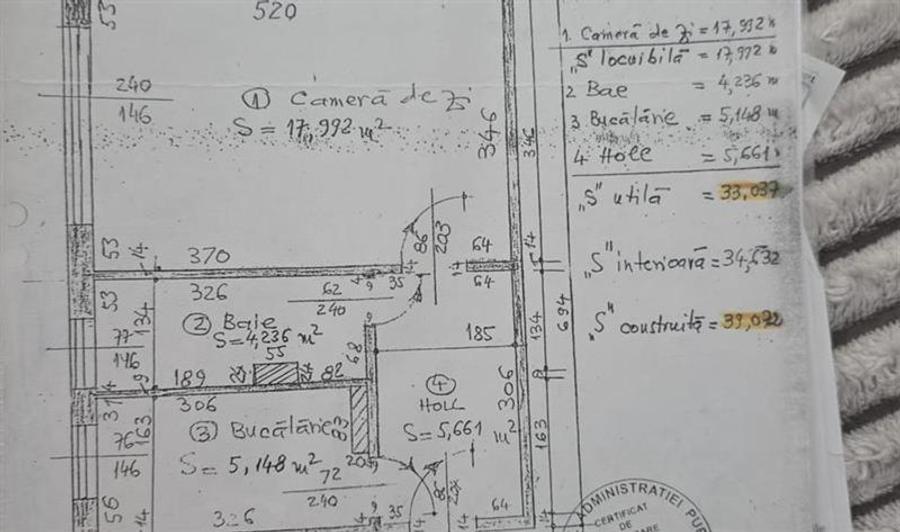 53
520
240
146
① Cameră de zi
S = 17,992 m²
346
346
1. Cameră de zi = 17,992
„S" locuibilă = 17,992
2 Bae = 4,236 m
3 Bucălărie = 5,148 m
4 Holl = 5,661
„S" utilă = 33,037
„S" interioară = 34,632
„S" construită = 39,072
53
14
370
86
203
64
64
14
35
14
53
134
326
62
240
② Baie
S = 4,236 m²
55
77
146
68
185
134
694
189
82
9
④
HOLL
S = 5,661 m²
306
163
31
163
306
③ Bucălărie
S = 5,148 m²
83
76
146
20
72
240
56
14
326
35
14
64
14
ADMINISTRATIEI PU
CERTIFICAT
DE